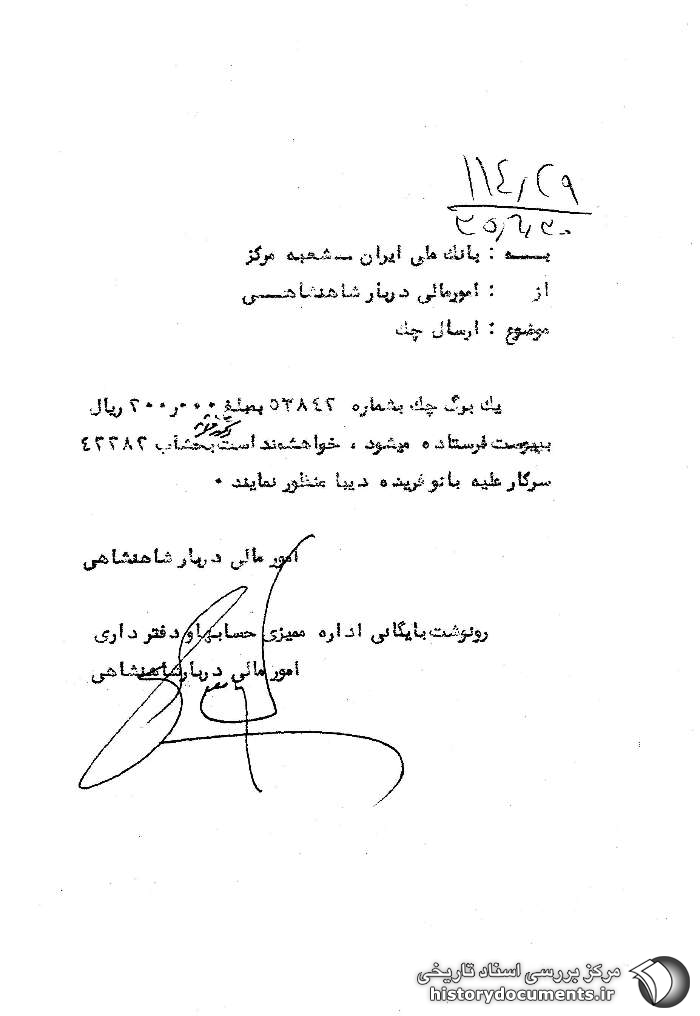 ۱۱۴/۲۹
۳۵/۶/۳۰
بــه : بانك ملی ایران ــ شعبه مرکز
از : امورمالی دربار شاهنشاهــی
موضوع : ارسال چك
یك برگ چك بشماره ۵۳۸۴۲ بمبلغ ۲۰۰٫۰۰۰ ریال
بپیوست فرستاده میشود ، خواهشمند است بحساب ۴۲۲۸۲
سرکار علیه بانو فریده دیبا منظور نمایند .
امور مالی دربار شاهنشاهی
رونوشت بایگانی اداره ممیزی حسابها و دفتر داری
امور مالی دربار شاهنشاهی
مرکز بررسی اسناد تاریخی
historydocuments.ir